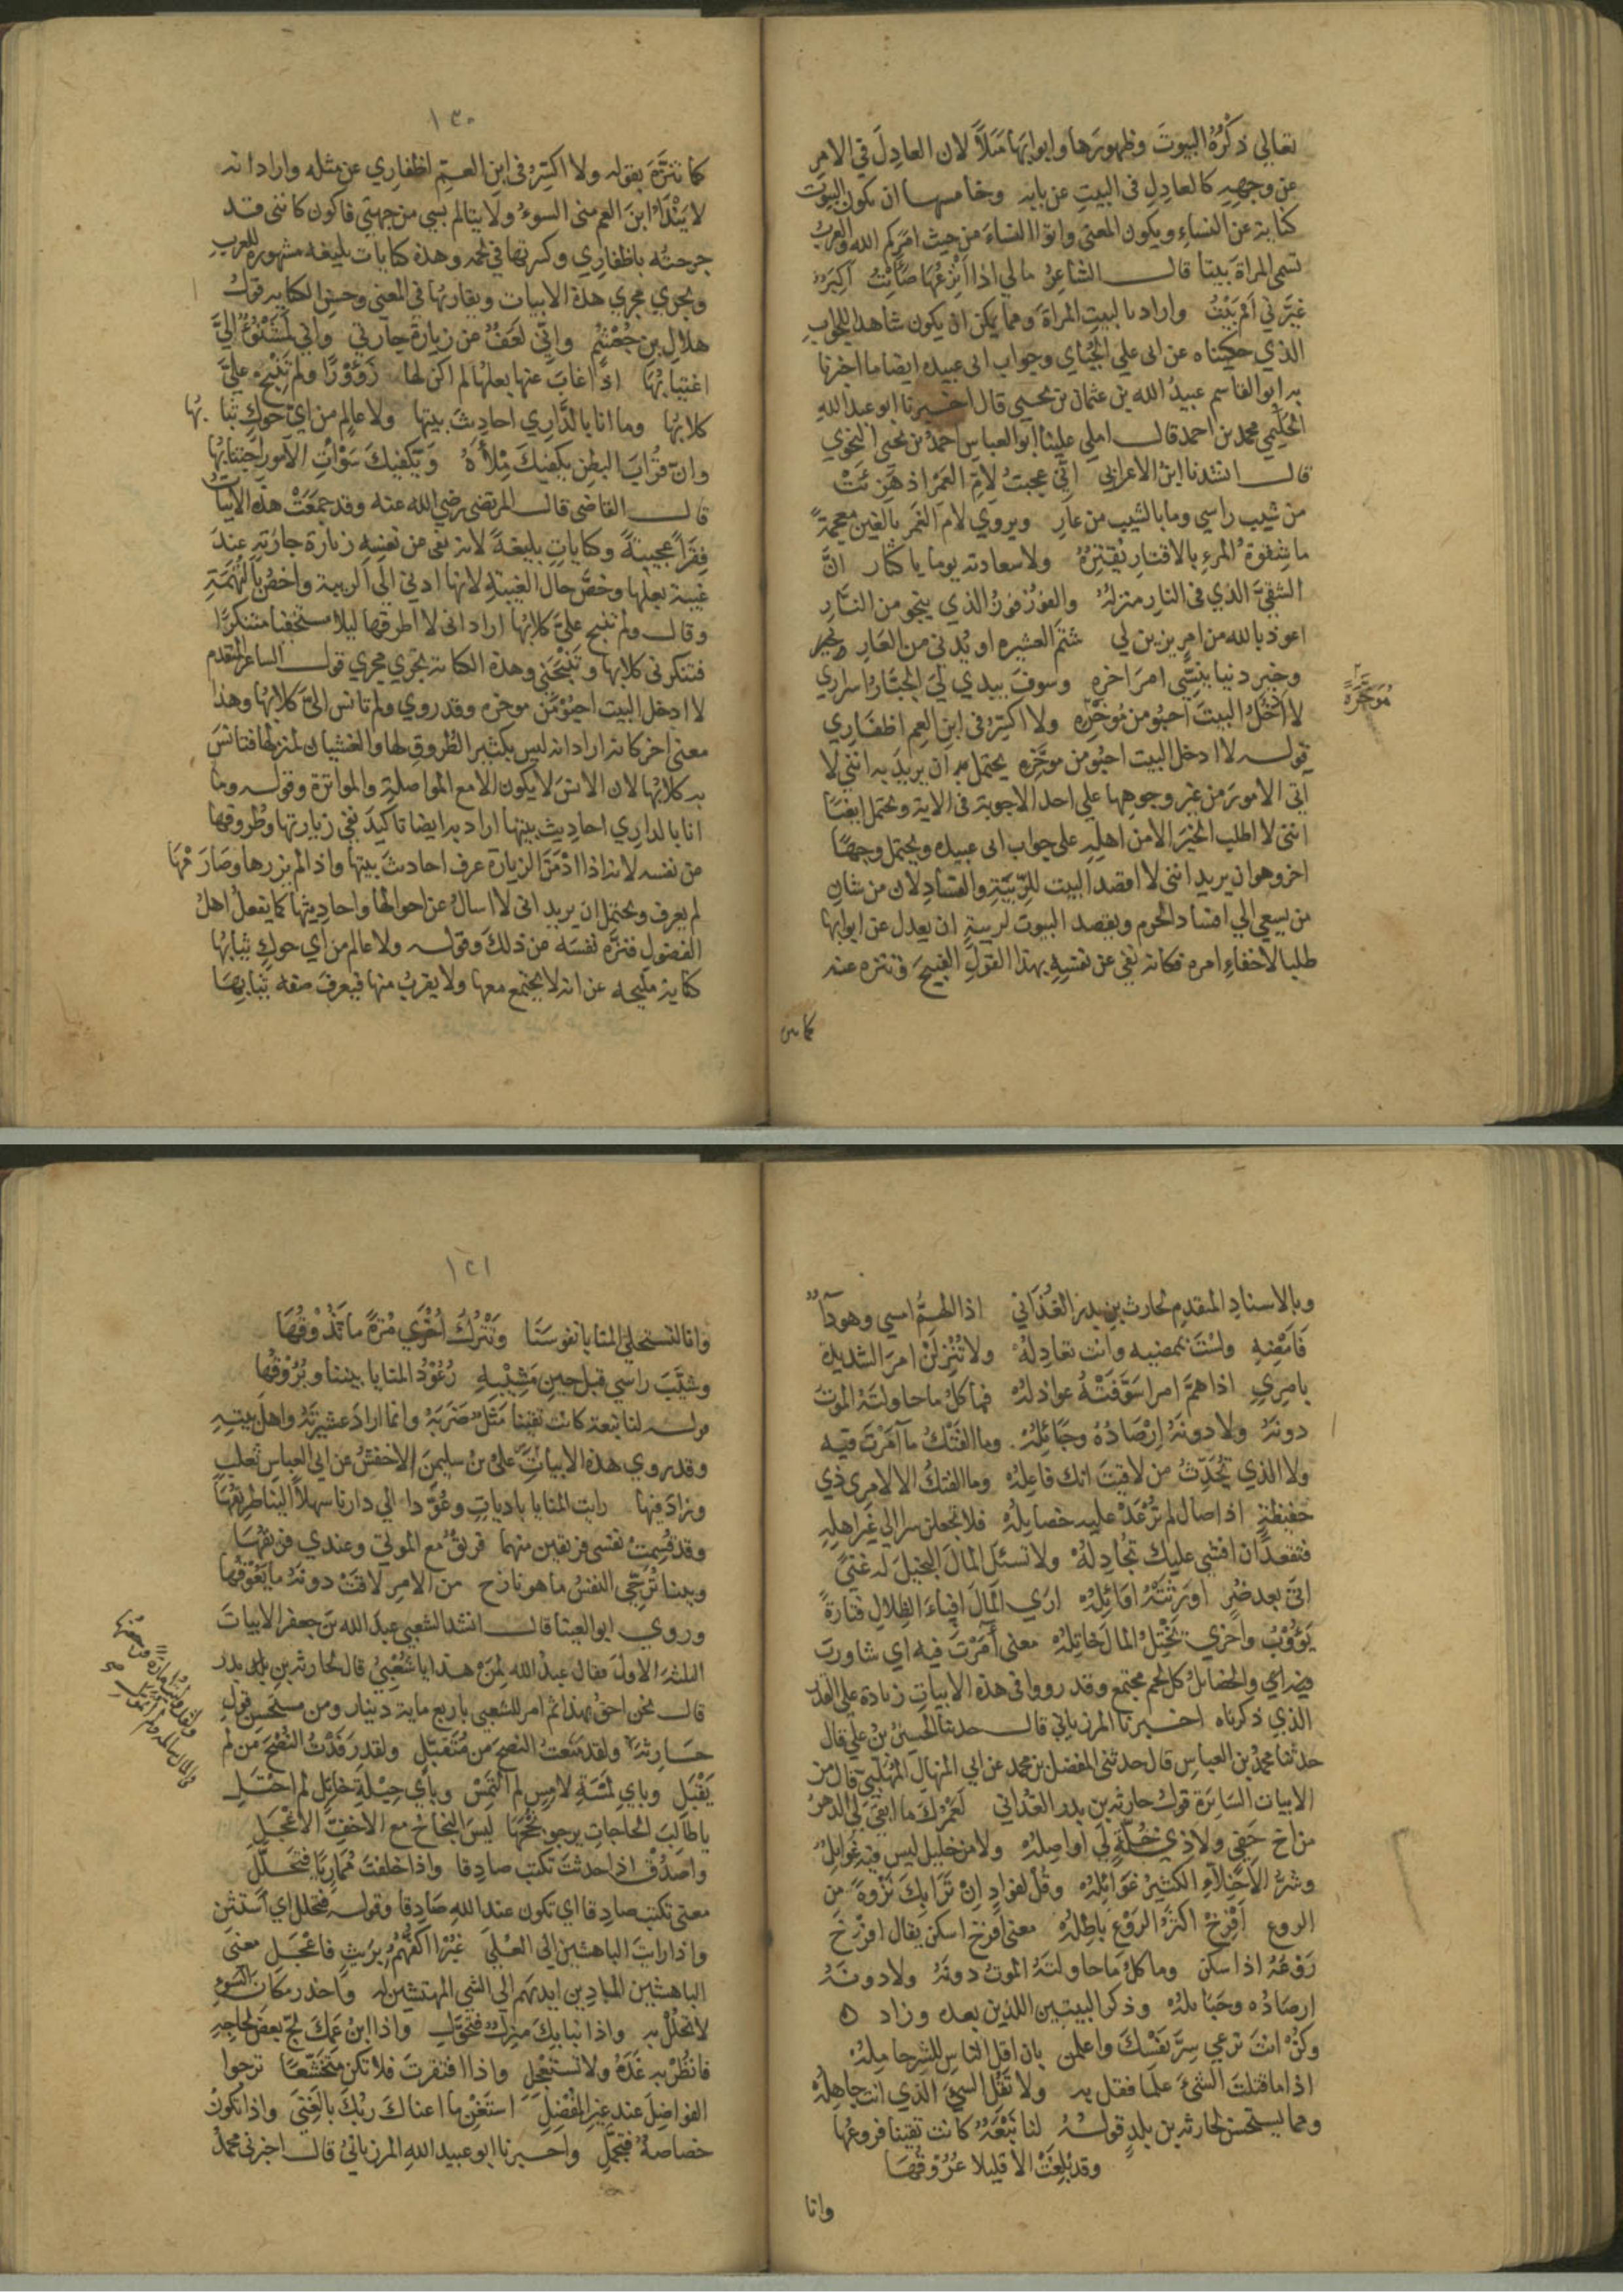 تعالي ذكرهُ البيوتَ وظهورَها وابوابَها مَثَلاً لان العادِلَ في الامرِ
عن وجهِهِ كالعادِلِ في البيتِ عن بابه وخامسها ان يكون البيوت
كناية عن النساءِ ويكون المعنى واتوا النساءَ من حيث امركم الله والعربُ
تسمى المراةَ بيتا قال الشاعرُ مالي اذا انزعُها صَأَيْتُ أكِبَرٌ
غيَّرني أم بَيْتُ وارادَ بالبيتِ المراةَ ومما يمكن ان يكون شاهدا للجوابِ
الذي حكيناه عن ابى علي الجُبّاي وجواب ابى عبيده ايضا ما اخبرنا
به ابو القاسم عبيدُ الله بن عثمان بن يحيى قال اخبرنا ابو عبد اللهِ
الحكيمي محمد بن احمد قال املى علينا ابو العباسِ احمدُ بن يحيى النحوي
قال انشدنا ابنُ الاعرابيّ انّي عجبتُ لامّ العَمْر اذ هَزِئَتْ
من شيب راسي وما بالشيب من عارِ ويروي لامّ الغمر بالغين معجمةً
ما شِقوةُ المرءِ بالاقتارِ يُقتِرُهُ ولا سعادته يوما باكثار انَّ
الشقىَّ الذي فى النار منزلهُ والفوزُ فوزُ الذي ينجو من النَّارِ
اعوذ بالله من امرٍ يزين لي شتمَ العشيره او يُدنى من العَارِ
وخيرِ دنيا ينسّي امرَ اخرهِ وسوف يبدي ليَ الجبَّارُ اسراري
لا أدخُلُ البيتَ أحبُو من مُؤخّره ولا اكسّرُ فى ابنِ العم اظفَاري
قوله لا ادخل البيت احبُو من موخّرِه يحتمل ان يريدَ به انني لا
آتي الامورَ من غير وجوهِها على احد الاجوبة فى الاية ويحتمل ايضًا
اننى لا اطلب الخيرَ الا من اهلِهِ على جواب ابى عبيده ويحتمل وجهًا
اخر وهو ان يريد اننى لا اقصد البيت للرِّيبَةِ والفسادِ لان من شانِ
من يسعى الي افساد الحُرم ويقصد البيوت لريبةٍ ان يعدل عن ابوابها
طلبا لاخفاءِ امره فكانه نفى عن نفسِهِ بهذا القولِ القبيحَ وتنزه عنه
كما تنزه
مُوَخَّرَهُ
١٢٠
كما تنزَّهَ بقوله ولا اكسّرُ فى ابن العمِّ اظفاري عن مثله وارادا نه
لا يَنْدَأُ ابنَ العم منى السوءُ ولا يتالم بشي من جهتي فاكون كاننى قد
جرحتُه باظفاري وكسرتها في لحمه وهذه كنايات بليغه مشهوره للعربِ
ويجري مجري هذه الابيات ويقاربُها في المعنى وحسنِ الكنايه قولُ
هلالِ بن جُعْثُمٍ وانّي لعَفٌّ عن زيارةِ جارتي وانّي لمشنُوءٌ اليَّ
اغتيابُهَا اذا غابَ عنها بعلُها لم اكن لها زَؤورًا ولم تَنْبح عليَّ
كلابُها وما انا بالدَّاري احاديثَ بيتها ولا عالمٍ من ايّ حَوكٍ ثيابُها
وان قُرابَ البطنِ يكفيكَ مِلأَهُ ويكفيكَ سَوْأتِ الامورِ اجتنابُها
قال القاضى قال المرتضى رضي الله عنه وقد جمعَتْ هذه الابياتُ
فِقَراً عجيبةً وكناياتٍ بليغةً لانه نفى عن نفسِهِ زيارة جارتِهِ عندَ
غيبة بعلها وخصَّ حال الغيبةِ لانها ادنى الي الريبة واخصُّ بالتُّهَمَةِ
وقال ولم تنبح عليَّ كلابُها اراد انى لا اطرقها ليلا مستخفيا متنكرًا
فتنكرنى كلابها وتَنْبَحَني وهذه الكنايه تجري مجري قول الشاعر المتقدم
لا ادخل البيت احبُو من موخره وقد روي ولم تانس اليَّ كلابُها وهذا
معنى اخر كانه اراد انه ليس بكثير الطُّروقِ لها والغشيان لمنزلها فتانسَ
به كلابُها لان الانسَ لا يكون الا مع المواصلةِ والمواترة وقوله وما
انا بالداري احاديث بيتها اراد به ايضا تاكيدَ نفي زيارتها وطُروقها
من نفسه لانه اذا ادْمَنَ الزيارة عرف احاديثَ بيتها واذا لم يزرها وصَارَمَهَا
لم يعرف ويحتمل ان يريد انى لا اسالُ عن احوالها واحاديثها كما يفعلُ اهلُ
الفضولِ فنزَّه نفسَه عن ذلك وقوله ولا عالم من اي حوكِ ثيابُها
كناية مليحه عن انه لا يجتمع معها ولا يقربُ منها فيعرفَ صفه ثيابِهَا
وبالاسنادِ المتقدمِ لحارث بن بدر الغُدَاني اذا الهمُّ امسي وهو داءٌ
فَامْضِهِ ولسْتَ بممضيه وانت تعادِلُهْ ولا تُنْزِلَنْ امرَ الشديدةِ
بامرِئٍ اذا همَّ امرا سَوَّفَتْهُ عواذلُهْ فما كلُّ ما حاولتَهُ الموتُ
دونَهُ ولا دونَهُ ارْصَادُهُ وحَبَائِلُهْ وما الفتكُ ما آمَرْتَ فيه
ولا الذي تُحدِّثُ من لاقيتَ انك فاعلُهْ وما الفتكُ الا لامرِئٍ ذي
حفيظةٍ اذا صال لم تُرْعَدْ عليه خصايلُهْ فلا تجعلن سرا الى غيرِ اهلِهِ
فتقعدَ ان افشي عليك تُجادِلُهْ ولا تسئل المالَ البخيلَ له غنًى
اتىَ بعد ضُرٍ اورَثتْهُ اوَائِلُهْ اري المالَ افياءَ الظِلالِ فتارةً
يَؤُوْبُ واخرَي تَخْتِلُ المالَ خاتِلُهْ معنى آمَرْتَ فيه اي شاورت
فيه اي والخصايلُ كل لحم مجتمع وقد رووا فى هذه الابياتِ زيادة على القدر
الذي ذكرناه اخبرنا المرزباني قال حدثنا الحسينُ بنُ عليّ قال
حدثنا محمد بن العباسِ قال حدثنى المفضل بن محمد عن ابي المنهالِ المُهلبيّ قال من
الابيات السَايرَة قولُ حارثه بن بدر الغُدَاني لَعَمْرُكَ ما ابقَى ليَ الدهرُ
من اخٍ حَفيٍ ولا ذي خُلَّةٍ لي اواصلُهْ ولا من خليلٍ ليس فيه غوايلٌ
وشرُّ الاخلاءِ الكثيرُ غوَائِلُهْ وقُلْ لفوادٍ اِنْ نَزَا بكَ نَزْوةً من
الروعِ أَفْرِخْ اكثرُ الرَوْعِ باطِلُهْ معنى أفرخ اسكن يقال افرخَ
رَوْعُهُ اذا سكن وما كلُ ما حاولتَهُ الموتُ دونَهُ ولا دونَهُ
ارصَادُه وحَبَائلُهْ وذكر البيتين اللذين بعده وزاد
وكُنْ انتَ ترعي سِرَّ نَفْسكَ واعلمن بان اقلَ الناسِ للسرّ حاملُهْ
اذا ما قتلتَ الشئَ علما فقل به ولا تَقُلِ الشئَ الذي انت جاهلُهْ
ومما يستحسن لحارثه بن بدرٍ قولُهُ لنا نَبْعَةٌ كانت تقينا فروعُها
وقد بُلغَتْ الا قليلا عُرُوْقُهَا
وانا
١٢١
وانا لتستحلي المنايا نفوسَنا ونَتْرُكُ أُخْرَي مُرّةً ما نَذُوْقُهَا
وشَيَّبَ راسي قبل حينِ مَشيْبِهِ رُعُوْدُ المنايا بيننا وبُرُوْقُها
قوله لنا نبعة كانت تقينا مَثَلٌ ضَرَبَهُ وانما ارادَ عشيرَتَهُ واهلَ بيتِهِ
وقد روي هذه الابياتِ علىُّ بنُ سليمنَ الاخفشُ عن ابي العباسِ ثعلبٍ
وزاد فيها رايت المنايا بادياتٍ وعُوَّدا الى دارنا سهلاً الينا طريقُهَا
وقد قُسِمتْ نفسى فريقين منهما فريقٌ مع الموتىَ وعندي فريقُهَا
وبينا تُرجّي النفسُ ما هو نازح من الامرِ لاقَتْ دونهُ ما يَعُوْقُها
وروي ابو العينا قال انشد الشعبي عبدَ الله بنَ جعفر الابياتَ
الثلثة الاولَ فقال عبدُ الله لِمَنْ هذا يا شَعْبِيُّ قال لحارثه بن بدر
قال نحن احقُّ بهذا ثم امر للشعبي باربع ماية دينار ومن مستحسنِ قولِ
حارثةَ ولقد مَنَعتُ النصحَ من مُتَقبّلٍ ولقد رَفَدْتُ النُّصْحَ من لم
يَقْبَلِ وبايّ لَمْسَةِ لامِسٍ لم ألْتَمِسْ وبأيّ حيْلةِ حايِل لم احْتَلِ
يا طالبَ الحاجاتِ يرجو نُجْحَهَا ليسَ النجاحُ مع الاخفِّ الاعْجَلِ
واصدُقْ اذا حدثتَ تُكتبْ صادِقا واذا حلفتَ مُمَارِيًا فتحَلّلِ
معنى تكتب صادِقا اي تكون عند اللهِ صَادِقا وقوله فتحلل اي استثنِ
واذا رايتَ الباهشين الى العُلَي غُبْرًا اكفُّهُمْ بِرَيْثٍ فاعْجَلِ معنىَ
الباهشين المادِّين ايديَهم الى الشي المهتشين له واحذر مكانَ السوءِ
لا تحلُلْ به واذا نبا بكَ منزِلٌ فتحوَّلِ واذا ابنُ عَمّكَ لجّ بعضَ لجاجِهِ
فانظُرْ به غَدَهُ ولا تستعْجلِ واذا افتقرتَ فلا تكن متخشّعًا ترجوا
الفواضِلَ عند غيرِ المُفْضِلِ استَغْنِ ما اغناكَ ربُّكَ بالغِنَى واذا تكونُ
خصاصةٌ فتجمّلِ واخبرنا ابو عبيد اللهِ المرزبانيُ قال اخبرنى محمدُ